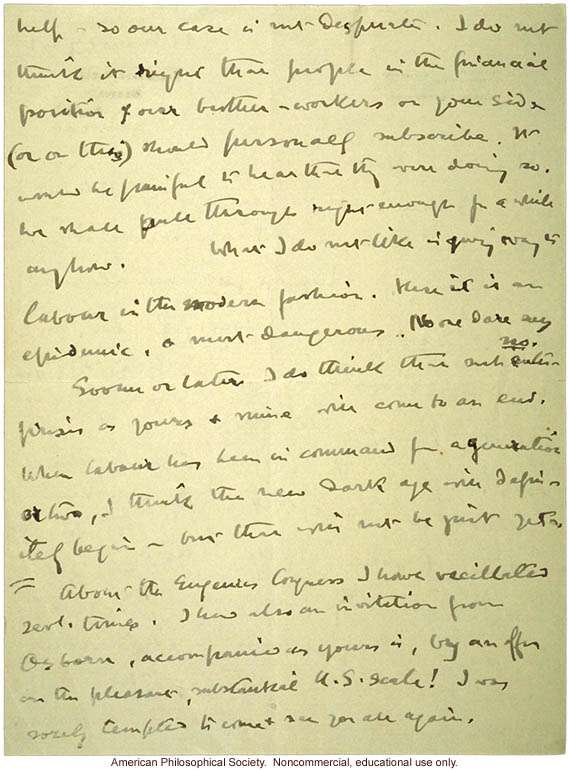 help - so our case is not desperate. I do not
think it right that people in the financial
position of our brother-workers on your side
(or on this) should personally subscribe. It
would be painful to hear that they were doing so.
We shall pull through right enough for a while
anyhow. What I do not like is giving way to
labour in the modern fashion. Here it is an
epidemic, & most dangerous. No one dare say
no.
Sooner or later I do think that such enter-
prises as yours & mine will come to an end.
When labour has been in command for a generation
or two, I think the new Dark age will defin-
itely begin - but that will not be just yet.
= About the Eugenics Congress I have vacillated
sevl. times. I have also an invitation from
Osborn, accompanied as yours is, by an offer
on the pleasant, substantial U.S. scale! I was
sorely tempted to come & see you all again.
American Philosophical Society. Noncommercial, educational use only.